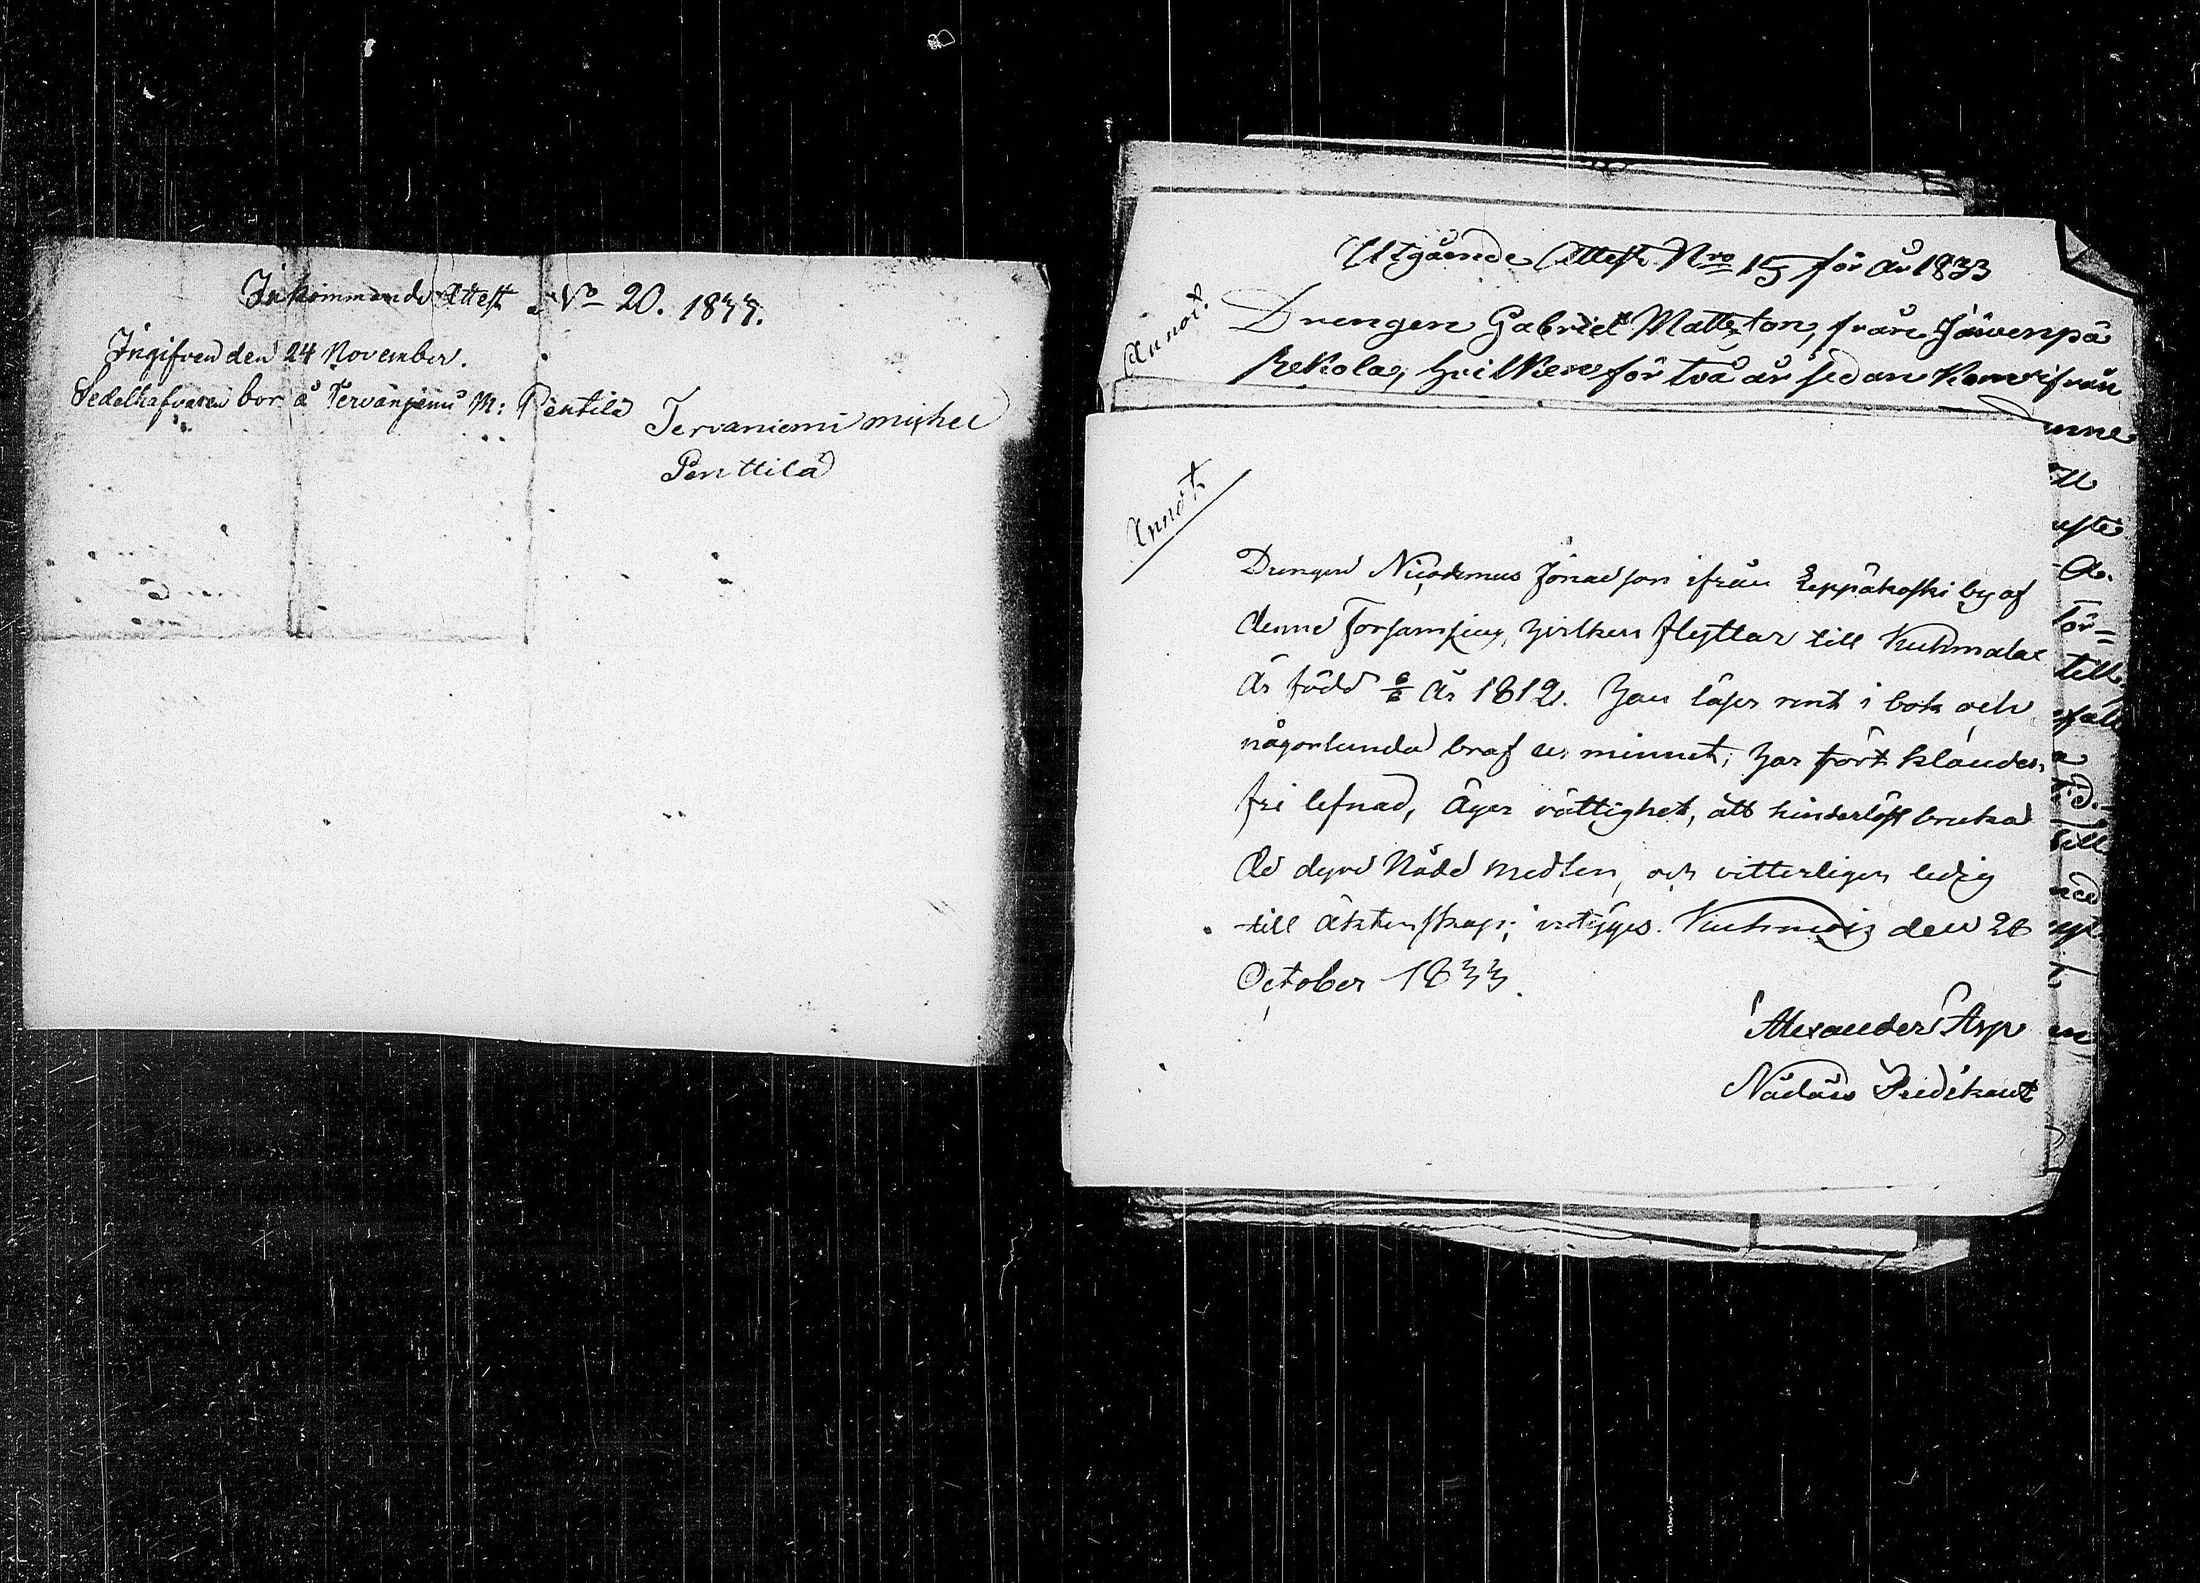 Inkommande Attest No 20. 1833.
Ingifven den 24 November.
Sedelhafvaren bor å Tervaniemi M: Pentilä
Tervaniemi myhel
Penttilä
Utgående Attest Nro 15 för år 1833
Annot:
Drengen Gabriel Mattszon, från Järvenpä
Rekola, hvilken för två år sedan kom ifrån
Annot
Drengen Nicodemus Jonasson ifrån Leppäkoski by af
denne Församling, hvilken flyttar till Kuhmalax
är född 6/6 år 1812. Han läser rent i bok och
någorlunda braf ur minnet; har fört klander,
fri lefnad, äger rättighet, att hinderlöst bruka
de dyre Nåde medlen, och vitterligen ledig
till äktenskap; intygas. Kuhmois den 28
October 1833.
Alexander Asp
Nådårs Predikant